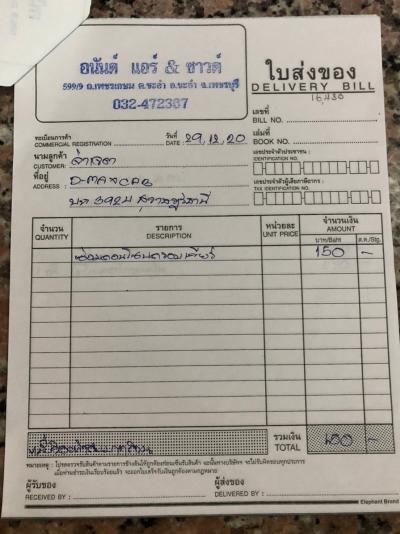 อนันต์ แอร์ & ซาวด์
599/9 ถ.เพชรเกษม ต.ชะอำ อ.ชะอำ จ.เพชรบุรี
032-472367
ใบส่งของ
DELIVERY BILL
16,430
เลขที่
BILL NO.
ทะเบียนการค้า
COMMERCIAL REGISTRATION
วันที่
DATE 29,12,20
เล่มที่
BOOK NO.
นามลูกค้า
CUSTOMER:
ที่อยู่
ADDRESS : D-MAX CAB
3924 สุราษฎร์ธานี
เลขประจำตัวประชาชน :
IDENTIFICATION NO.
เลขประจำตัวผู้เสียภาษีอากร :
TAX IDENTIFICATION NO.
จำนวน
QUANTITY
รายการ
DESCRIPTION
หน่วยละ
UNIT PRICE
จำนวนเงิน
AMOUNT
บาท/Baht
ส.ต./Stg.
150 -
รวมเงิน
TOTAL
150 -
หมายเหตุ : โปรดตรวจรับสินค้าตามรายการข้างต้นให้ถูกต้องก่อนเซ็นรับสินค้า ฉะนั้นทางบริษัทฯ จะไม่รับผิดชอบทุกประการ
เมื่อท่านชำระเงินเรียบร้อยแล้ว จะออกใบเสร็จรับเงินถูกต้องตามกฎหมาย
ผู้รับของ
RECEIVED BY :
ผู้ส่งของ
DELIVERED BY :
Elephant Brand